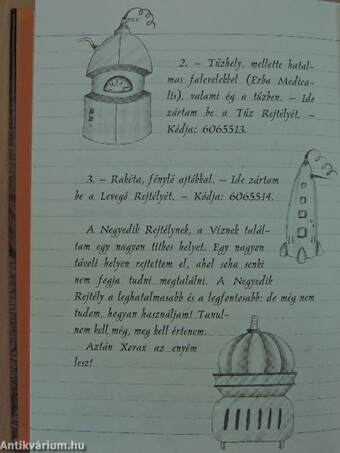 2. – Tűzhely, mellette hatal-
mas falevelekkel (Erba Medica-
lis), valami ég a tűzben. – Ide
zártam be a Tűz Rejtélyét. –
Kódja: 6065513.
3. – Rakéta, fénylő ajtókkal. – Ide zártam
be a Levegő Rejtélyét. – Kódja: 6065514.
A Negyedik Rejtélynek, a Víznek talál-
tam egy nagyon titkos helyet. Egy nagyon
távoli helyen rejtettem el, ahol soha senki
nem fogja tudni megtalálni. A Negyedik
Rejtély a leghatalmasabb és a legfontosabb: de még nem
tudom, hogyan használjam! Tanul-
nom kell még, meg kell értenem...
Aztán Xorax az enyém
lesz!
Antikvárium.hu
Antikvárium.hu